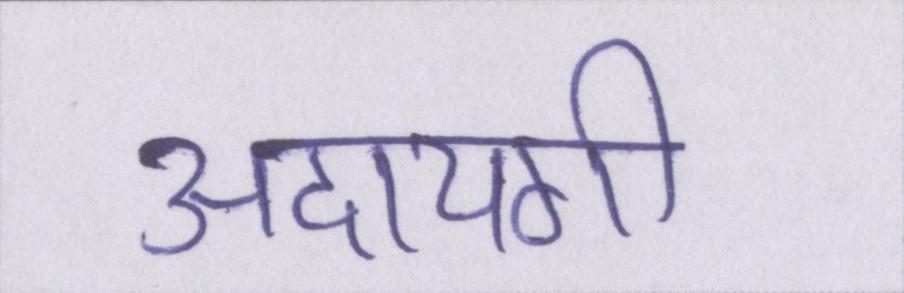 अदायगी